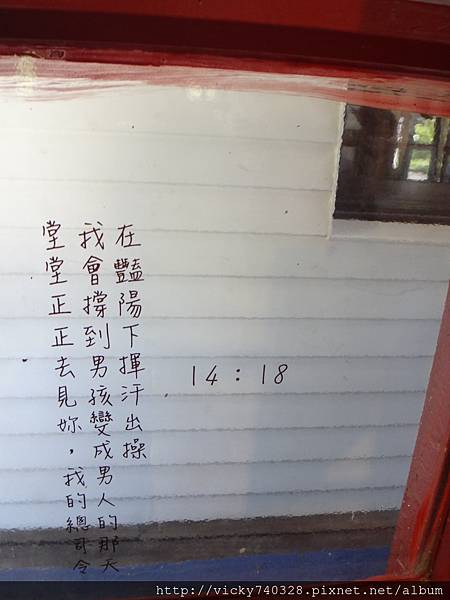 在豔陽下揮汗出操
我會撐到男孩變成男人的那天
堂堂正正去見妳，我的總司令
14：18
http://vicky740328.pixnet.net/album